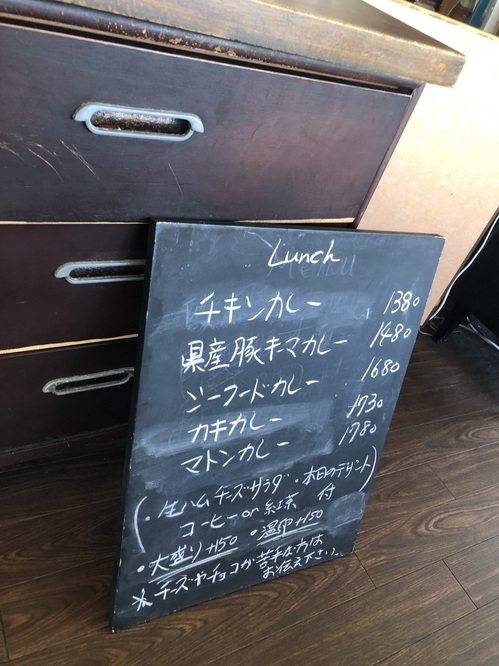 Lunch
チキンカレー 1380
県産豚キーマカレー 1480
シーフードカレー 1680
カキカレー 1730
マトンカレー 1780
(・生ハムチーズサラダ・本日のデリント)
コーヒー or 紅茶 付
・大盛り +150 ・温卵 +150
※チーズやチョコが苦手な方は
お伝え下さい。